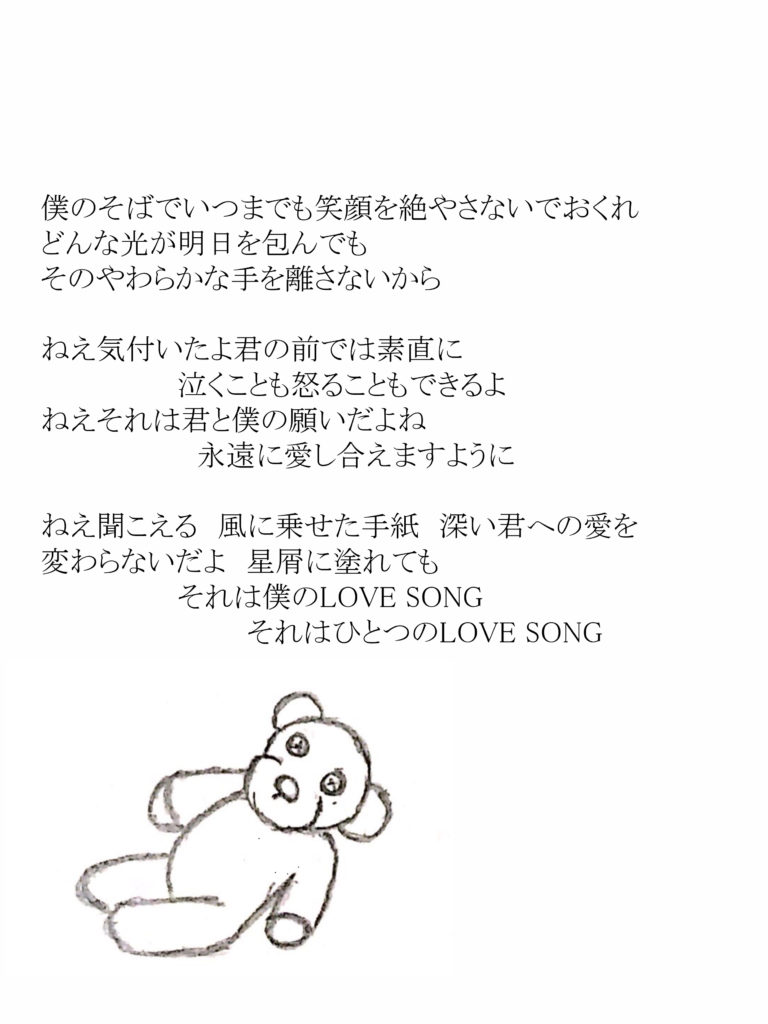 僕のそばでいつまでも笑顔を絶やさないでおくれ
どんな光が明日を包んでも
そのやわらかな手を離さないから
ねえ気付いたよ君の前では素直に
泣くことも怒ることもできるよ
ねえそれは君と僕の願いだよね
永遠に愛し合えますように
ねえ聞こえる　風に乗せた手紙　深い君への愛を
変わらないだよ　星屑に塗れても
それは僕のLOVE SONG
それはひとつのLOVE SONG